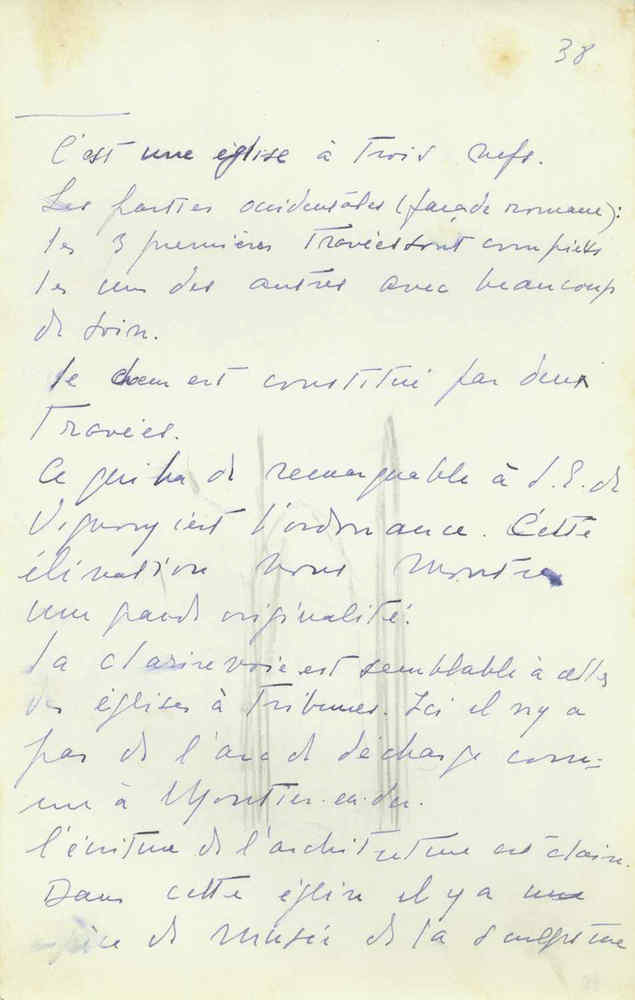 38
C'est une église à trois nefs.
Les parties occidentales (façade romane):
les 3 premières travées sont
les uns des autres avec beaucoup
de soin.
Le chœur est constitué par deux
Travées.
Ce qui ha de remarquable à S.E. de
Vignory c'est l'ordonance. Cette
élévation nous montre
une grande originalité.
La clairevoie est semblable à celles
des églises à Tribunes. Ici il n'y a
pas de l'arc de décharge com-
me à Montier-en-der.
l'écriture de l'architecture est claire.
Dans cette église il y a une
de musée de la sculpture